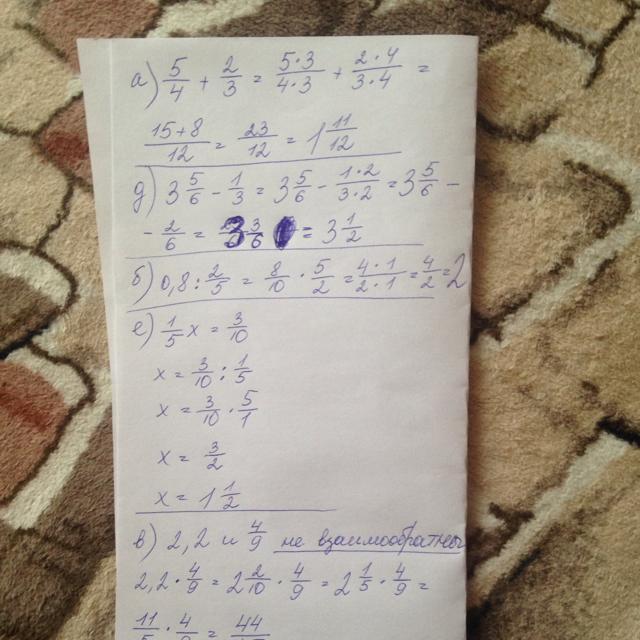 а) 5/4 + 2/3 = 5·3/4·3 + 2·4/3·4 =
15+8/12 = 23/12 = 1 11/12
д) 3 5/6 - 1/3 = 3 5/6 - 1·2/3·2 = 3 5/6 -
- 2/6 = 3 3/6 = 3 1/2
б) 0,8 : 2/5 = 8/10 · 5/2 = 4·1/2·1 = 4/2 = 2
е) 1/5 x = 3/10
x = 3/10 : 1/5
x = 3/10 · 5/1
x = 3/2
x = 1 1/2
в) 2,2 и 4/9 не взаимообратны
2,2 · 4/9 = 2 2/10 · 4/9 = 2 1/5 · 4/9 =
11/5 · 4/9 = 44